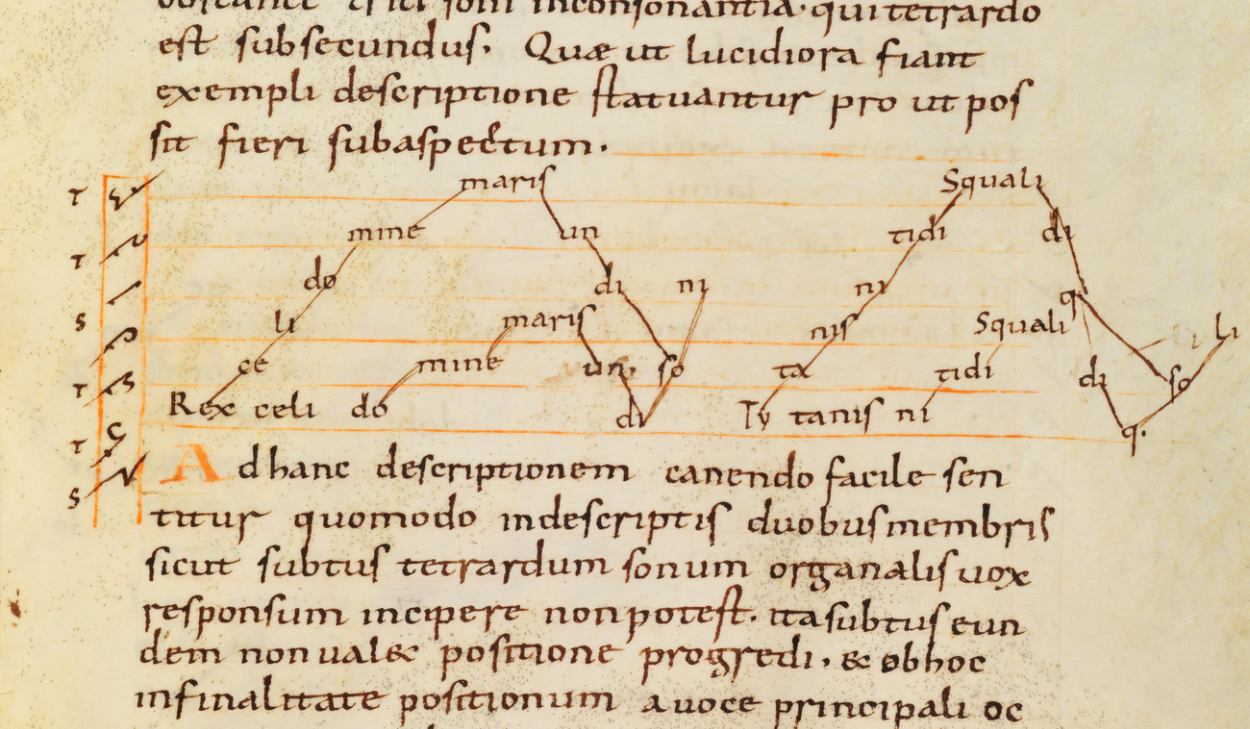 est subsecundus. Quæ ut lucidiora fiant
exempli descriptione statuantur pro ut pos
sit fieri subaspectum.
T maris Squali
T mine un tidi di
do di ni ni q
S li maris nis Squali li
T ce mine un so ta tidi di so
T Rex celi do di Ty tanis ni q.
S Ad hanc descriptionem canendo facile sen
titur quomodo indescriptis duobus membris
sicut subtus tetrardum sonum organalis vox
responsum incipere non potest. ita subtus eun
dem non valet positione progredi, & ob hoc
infinalitate positionum a voce principali oc